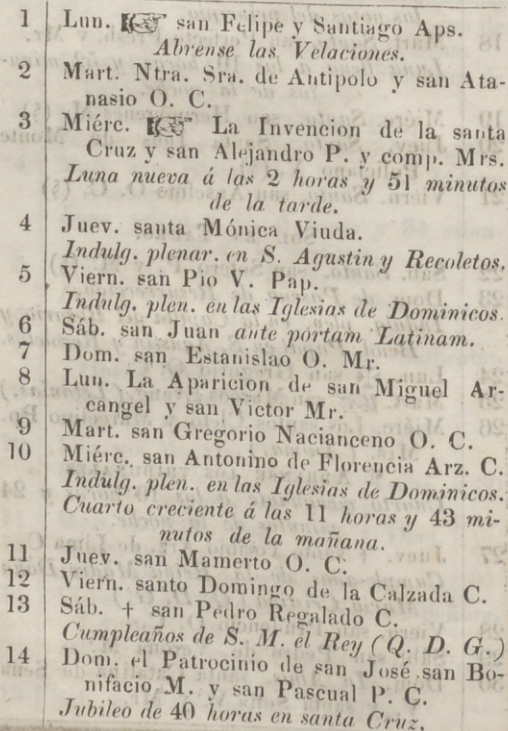 1 Lun. ☞ san Felipe y Santiago Aps.
Abrense las Velaciones.
2 Mart. Ntra. Sra. de Antipolo y san Ata-
nasio O. C.
3 Miérc. ☞ La Invencion de la santa
Cruz y san Alejandro P. y comp. Mrs.
Luna nueva á las 2 horas y 51 minutos
de la tarde.
4 Juev. santa Mónica Viuda.
Indulg. plenar. en S. Agustin y Recoletos.
5 Viern. san Pio V. Pap.
Indulg. plen. en las Iglesias de Dominicos.
6 Sáb. san Juan ante portam Latinam.
7 Dom. san Estanislao O. Mr.
8 Lun. La Aparicion de san Miguel Ar-
cangel y san Victor Mr.
9 Mart. san Gregorio Nacianceno O. C.
10 Miérc. san Antonino de Florencia Arz. C.
Indulg. plen. en las Iglesias de Dominicos.
Cuarto creciente á las 11 horas y 43 mi-
nutos de la mañana.
11 Juev. san Mamerto O. C.
12 Viern. santo Domingo de la Calzada C.
13 Sáb. † san Pedro Regalado C.
Cumpleaños de S. M. el Rey (Q. D. G.)
14 Dom. el Patrocinio de san José san Bo-
nifacio M. y san Pascual P. C.
Jubileo de 40 horas en santa Cruz.